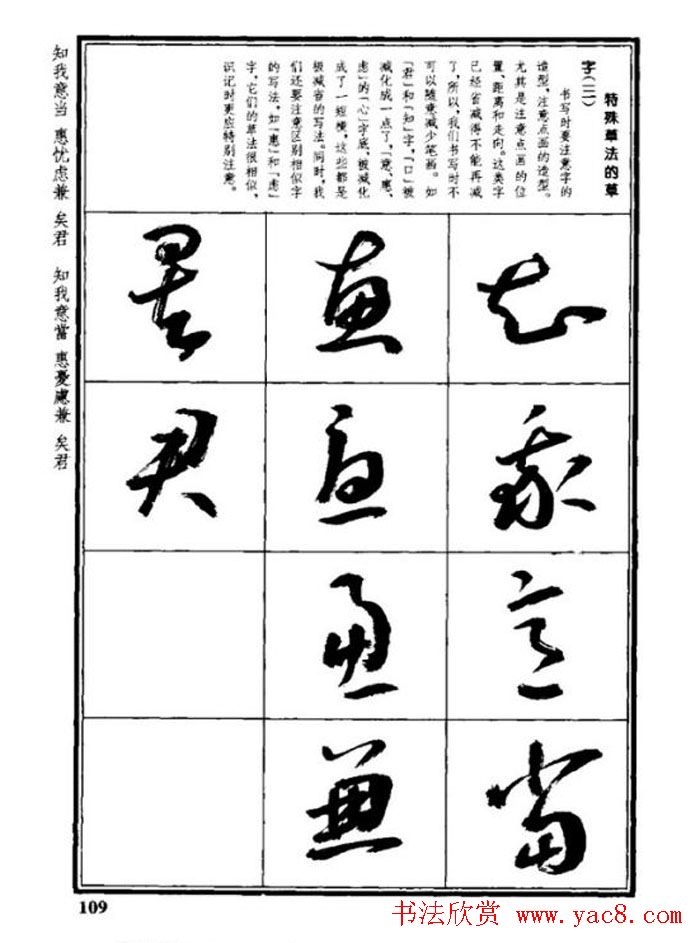 特殊草法的草
字(三)
书写时要注意字的
造型,注意点画的造型。
尤其是注意点画的位
置、距离和走向。这类字
已经省减得不能再减
了,所以,我们书写时不
可以随意减少笔画。如
“君”和“知”字,“口”被
减化成一点了,“意、惠、
虑”的“心”字底,被减化
成了一短横,这些都是
极减省的写法。同时,我
们还要注意区别相似字
的写法,如“惠”和“虑”
字,它们的草法很相似,
识记时更应特别注意。
知我意当
惠忧虑兼
矣君
知我意当 惠忧虑兼 矣君 知我意當 惠憂慮兼 矣君
109
书法欣赏 www.yac8.com